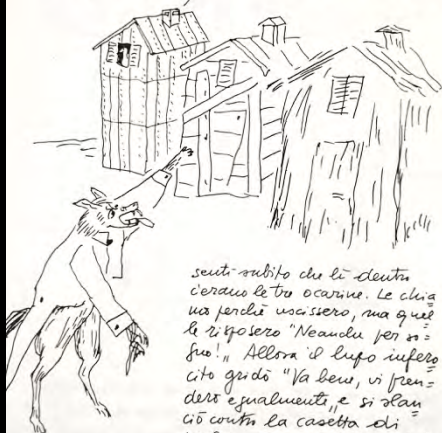 sentì subito che lì dentro
c'erano le tre ocarine. Le chia
mò perché uscissero, ma quel
le risposero "Neanche per so=
gno!" Allora il lupo infero
cito gridò "Va bene, vi pren=
derò egualmente", e si slan
ciò contro la casetta di